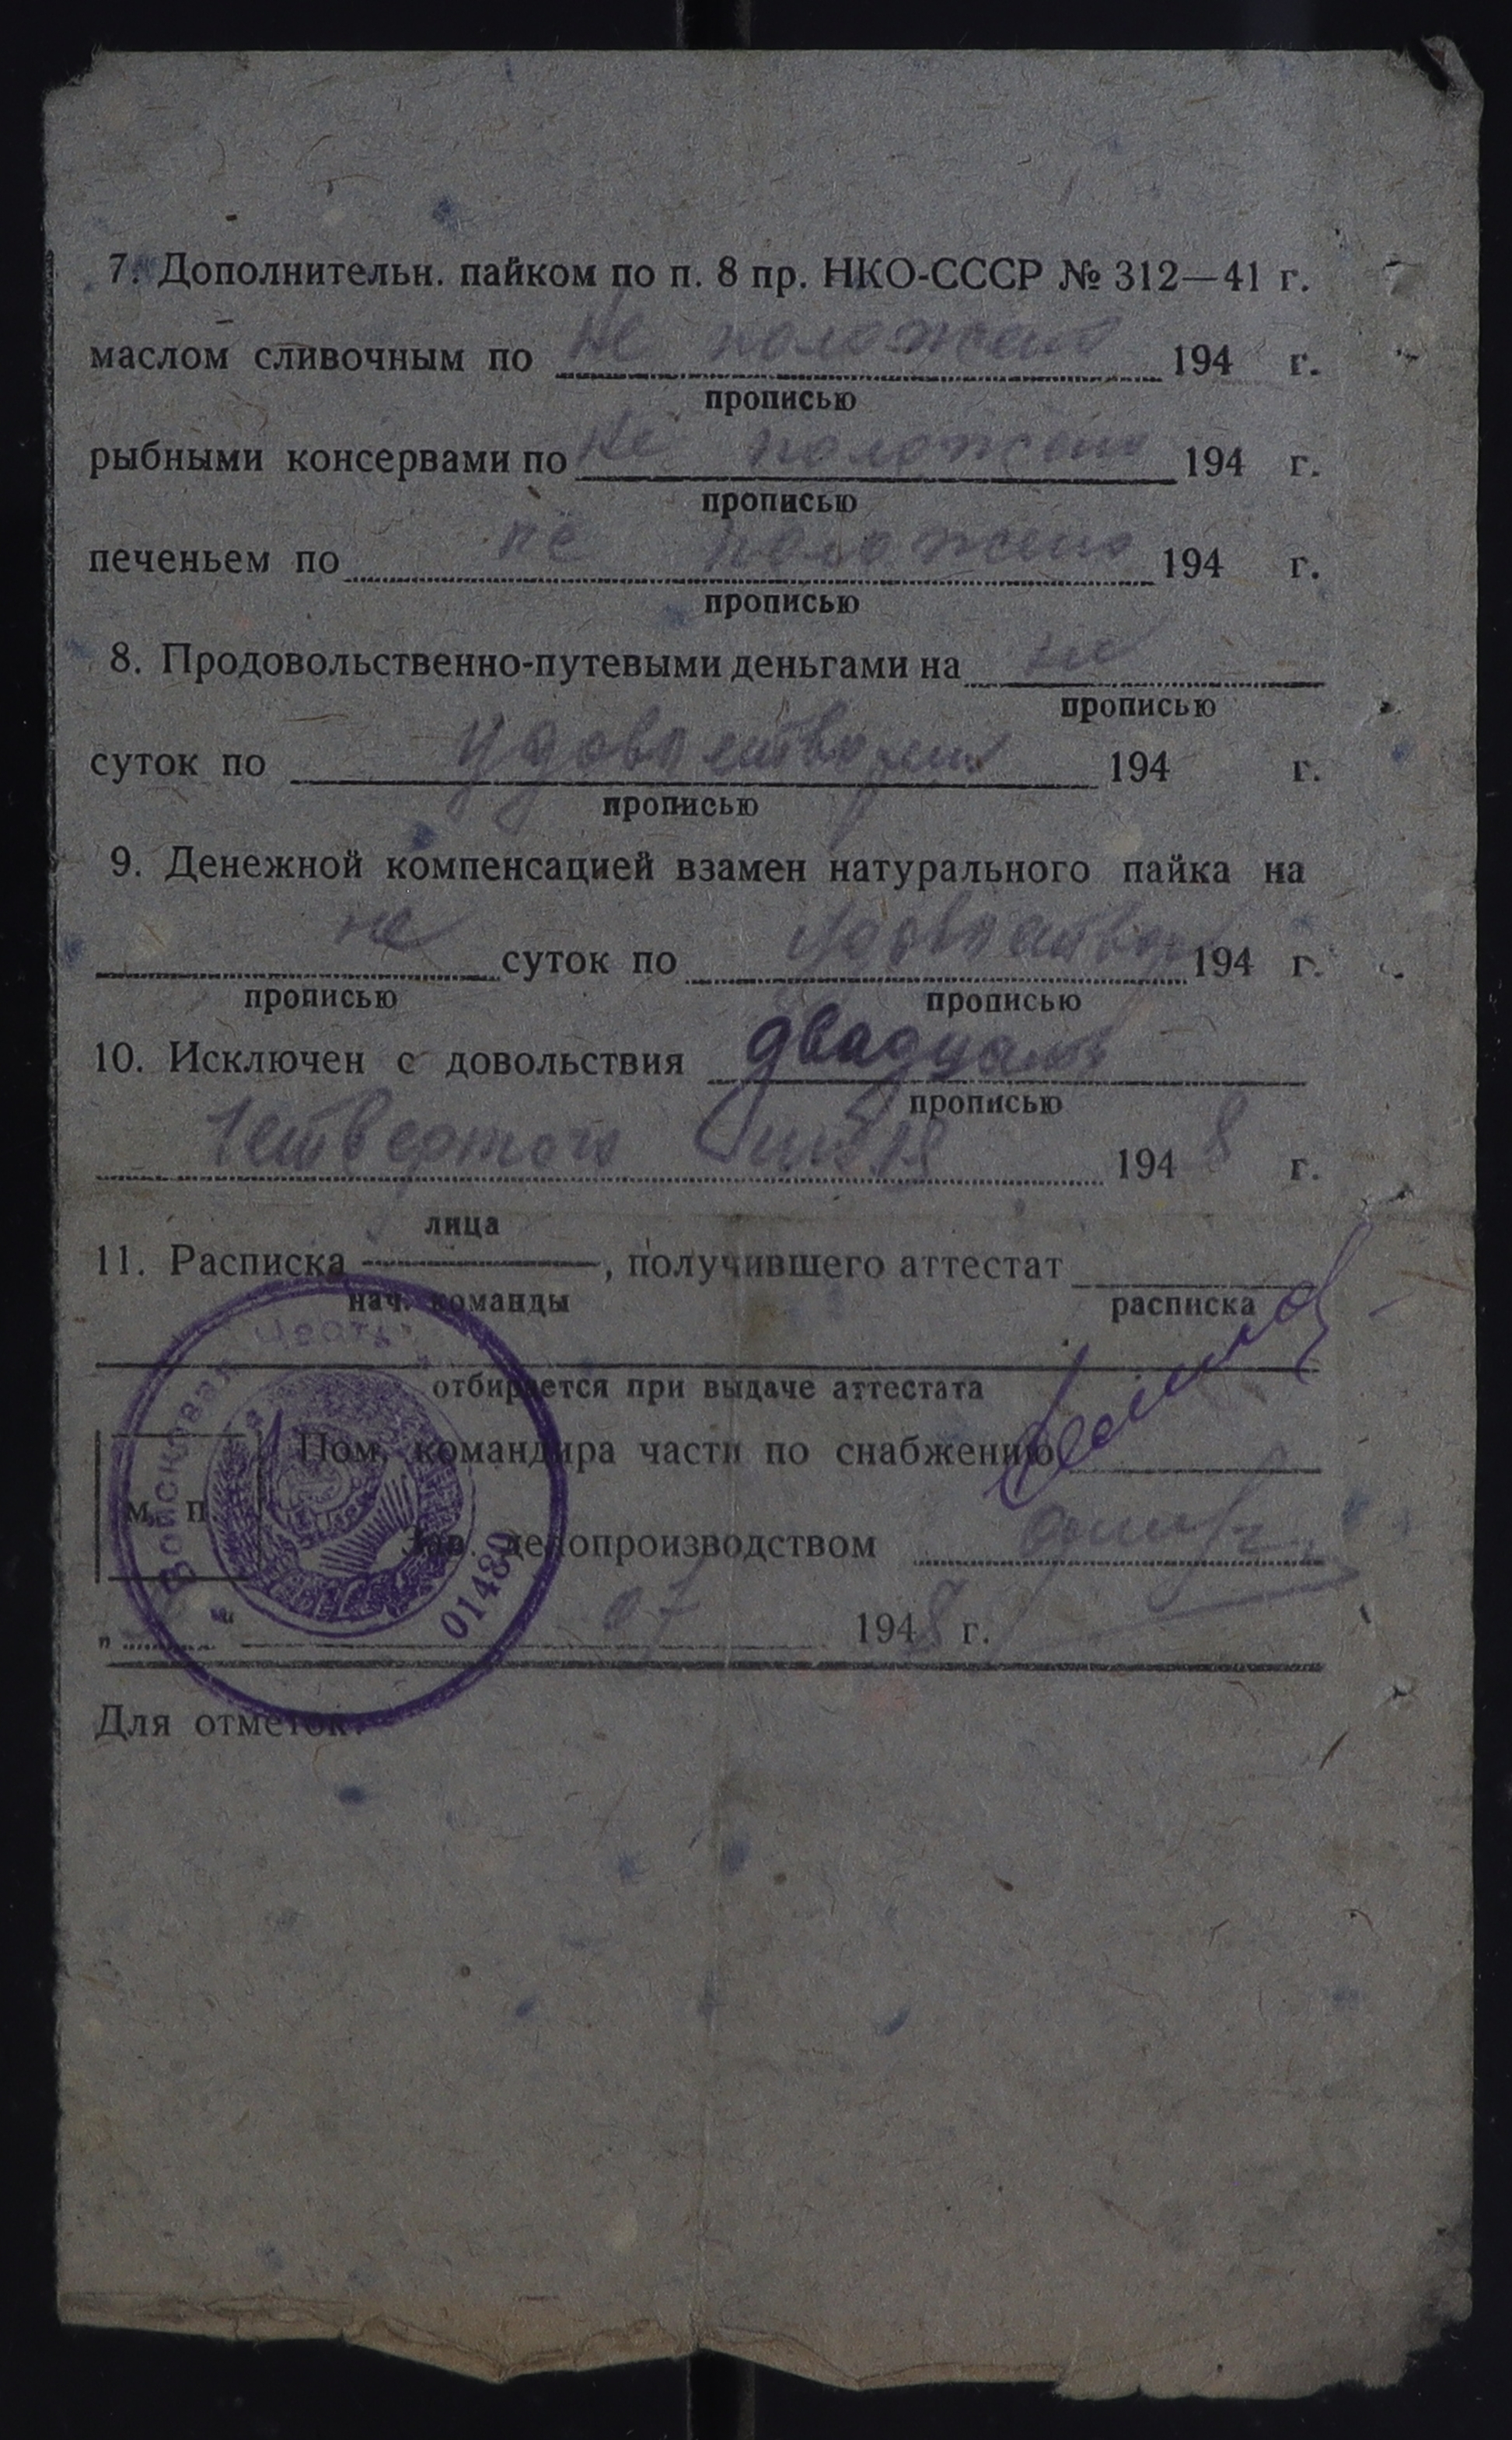 7. Дополнительн. пайком по п. 8 пр. НКО-СССР № 312—41 г.
маслом сливочным по не положено 194 г.
прописью
рыбными консервами по не положено 194 г.
прописью
печеньем по не положено 194 г.
прописью
8. Продовольственно-путевыми деньгами на не
прописью
суток по удовлетворен 194 г.
прописью
9. Денежной компенсацией взамен натурального пайка на
не суток по удовлетвор 194 г.
прописью прописью
10. Исключен с довольствия двадцать
прописью
четвертого 1948 г.
лица
11. Расписка , получившего аттестат
нач. команды расписка
отбирается при выдаче аттестата
Пом. командира части по снабжению
м. п.
Зав. делопроизводством
" " 07 1948 г.
Войсковая часть
01480
Для отметок: